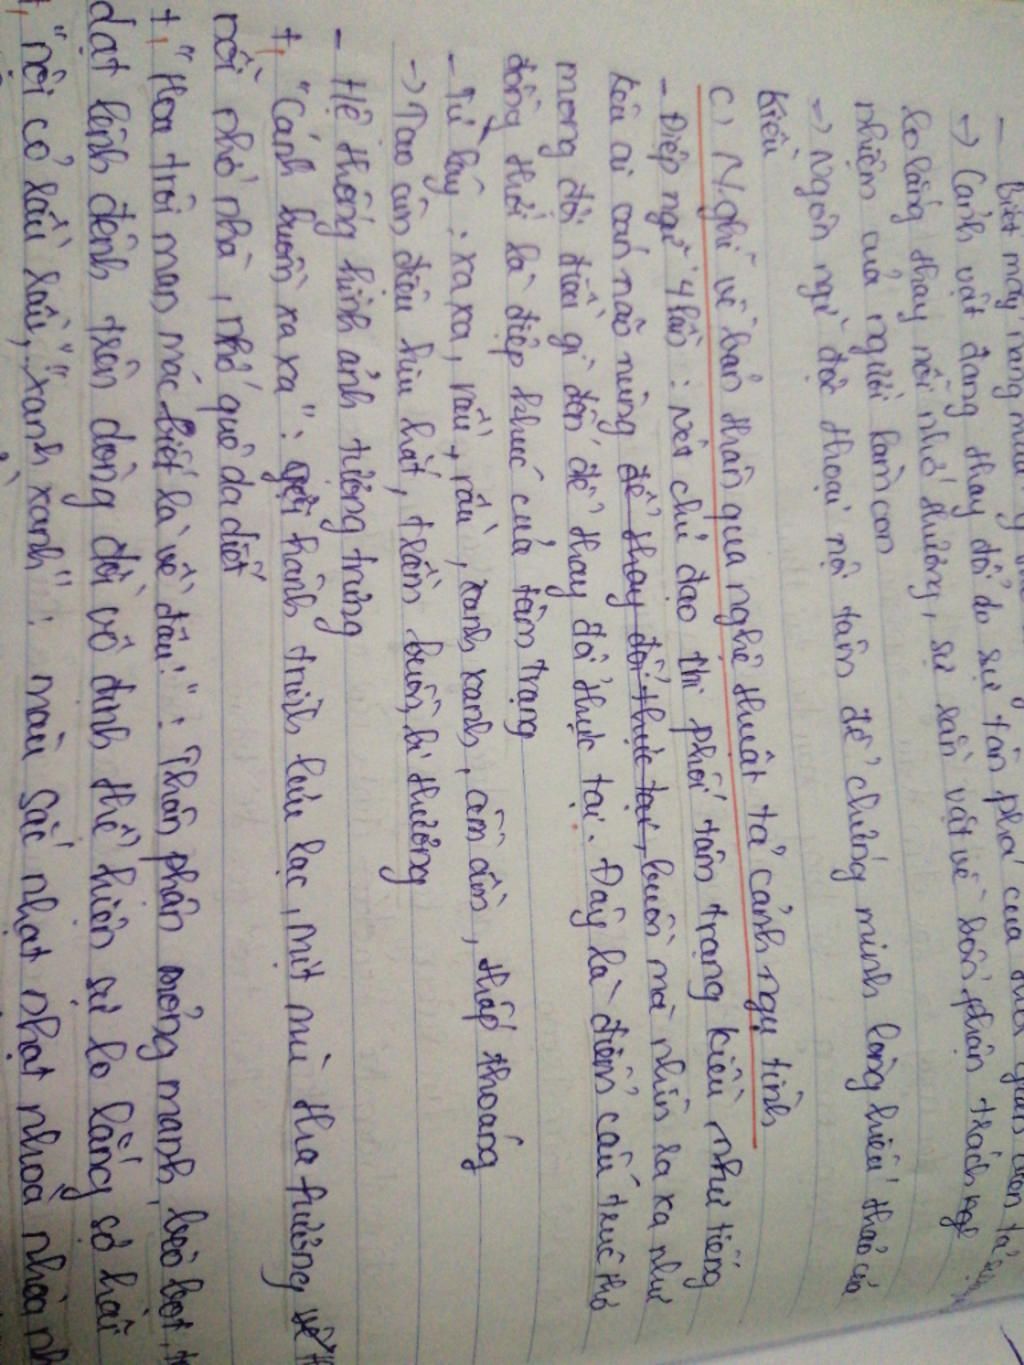 - Biết mấy nắng mưa
→ Cảnh vật đang thay đổi do sự tàn phá của
lo lắng thay nỗi nhớ thương, sự xót vật về bổn phận trách
nhiệm của người làm con
→ Ngôn ngữ độc thoại nội tâm để chứng minh lòng hiếu thảo của
Kiều
c) Nghĩ về bản thân qua nghệ thuật tả cảnh ngụ tình
- Điệp ngữ 4 lần: Nét chủ đạo thi phối tâm trạng Kiều như tiếng
kêu ai oán não nùng để thay đổi thực tại, buồn mà nhìn ra xa như
mong đợi điều gì đến để thay đổi thực tại. Đây là điểm cấu trúc thơ
đồng thời là điệp khúc của tâm trạng
- Từ láy: xa xa, rầu rầu, xanh xanh, ầm ầm, thấp thoáng
→ Tạo âm điệu hiu hắt, trầm buồn, bi thương
- Hệ thống hình ảnh tượng trưng
+, "Cánh buồm xa xa": gợi hành trình lưu lạc, mịt mù tha hương,
nỗi nhớ nhà, nhớ quê da diết
+, "Hoa trôi man mác biết là về đâu": Thân phận mỏng manh, bèo bọt,
dạt lênh đênh trên dòng đời vô định thể hiện sự lo lắng sợ hãi
+, "nội cỏ rầu rầu," "xanh xanh": màu sắc nhạt nhạt nhoà nhoà